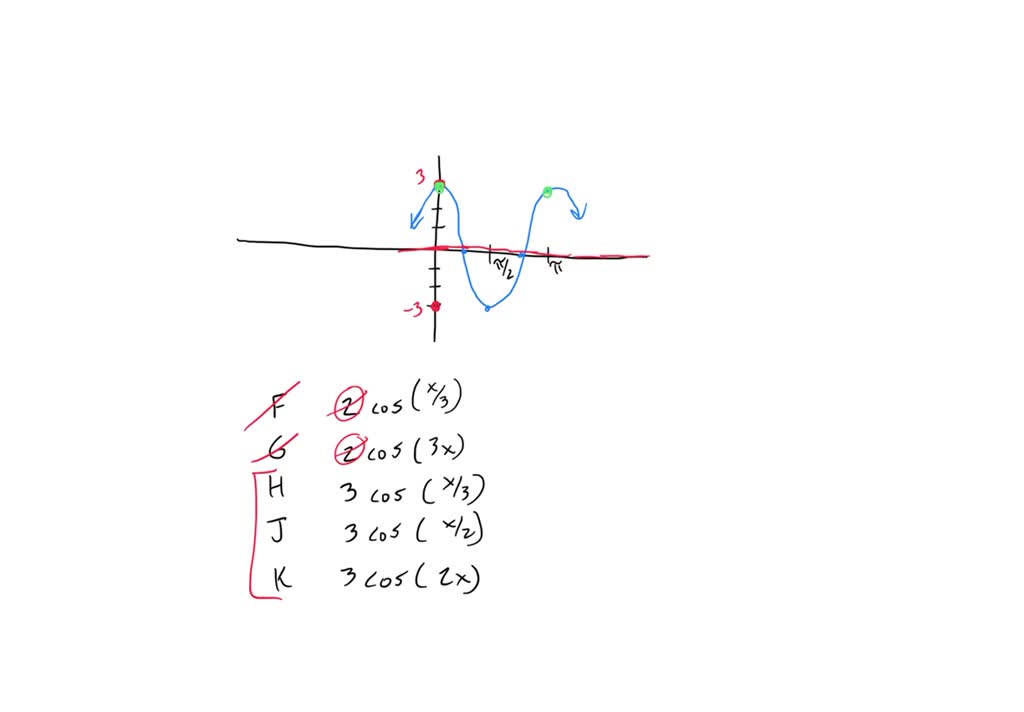 3
π/2
π
-3
F 2 cos (x/3)
G 2 cos (3x)
H 3 cos (x/3)
J 3 cos (x/2)
K 3 cos (2x)